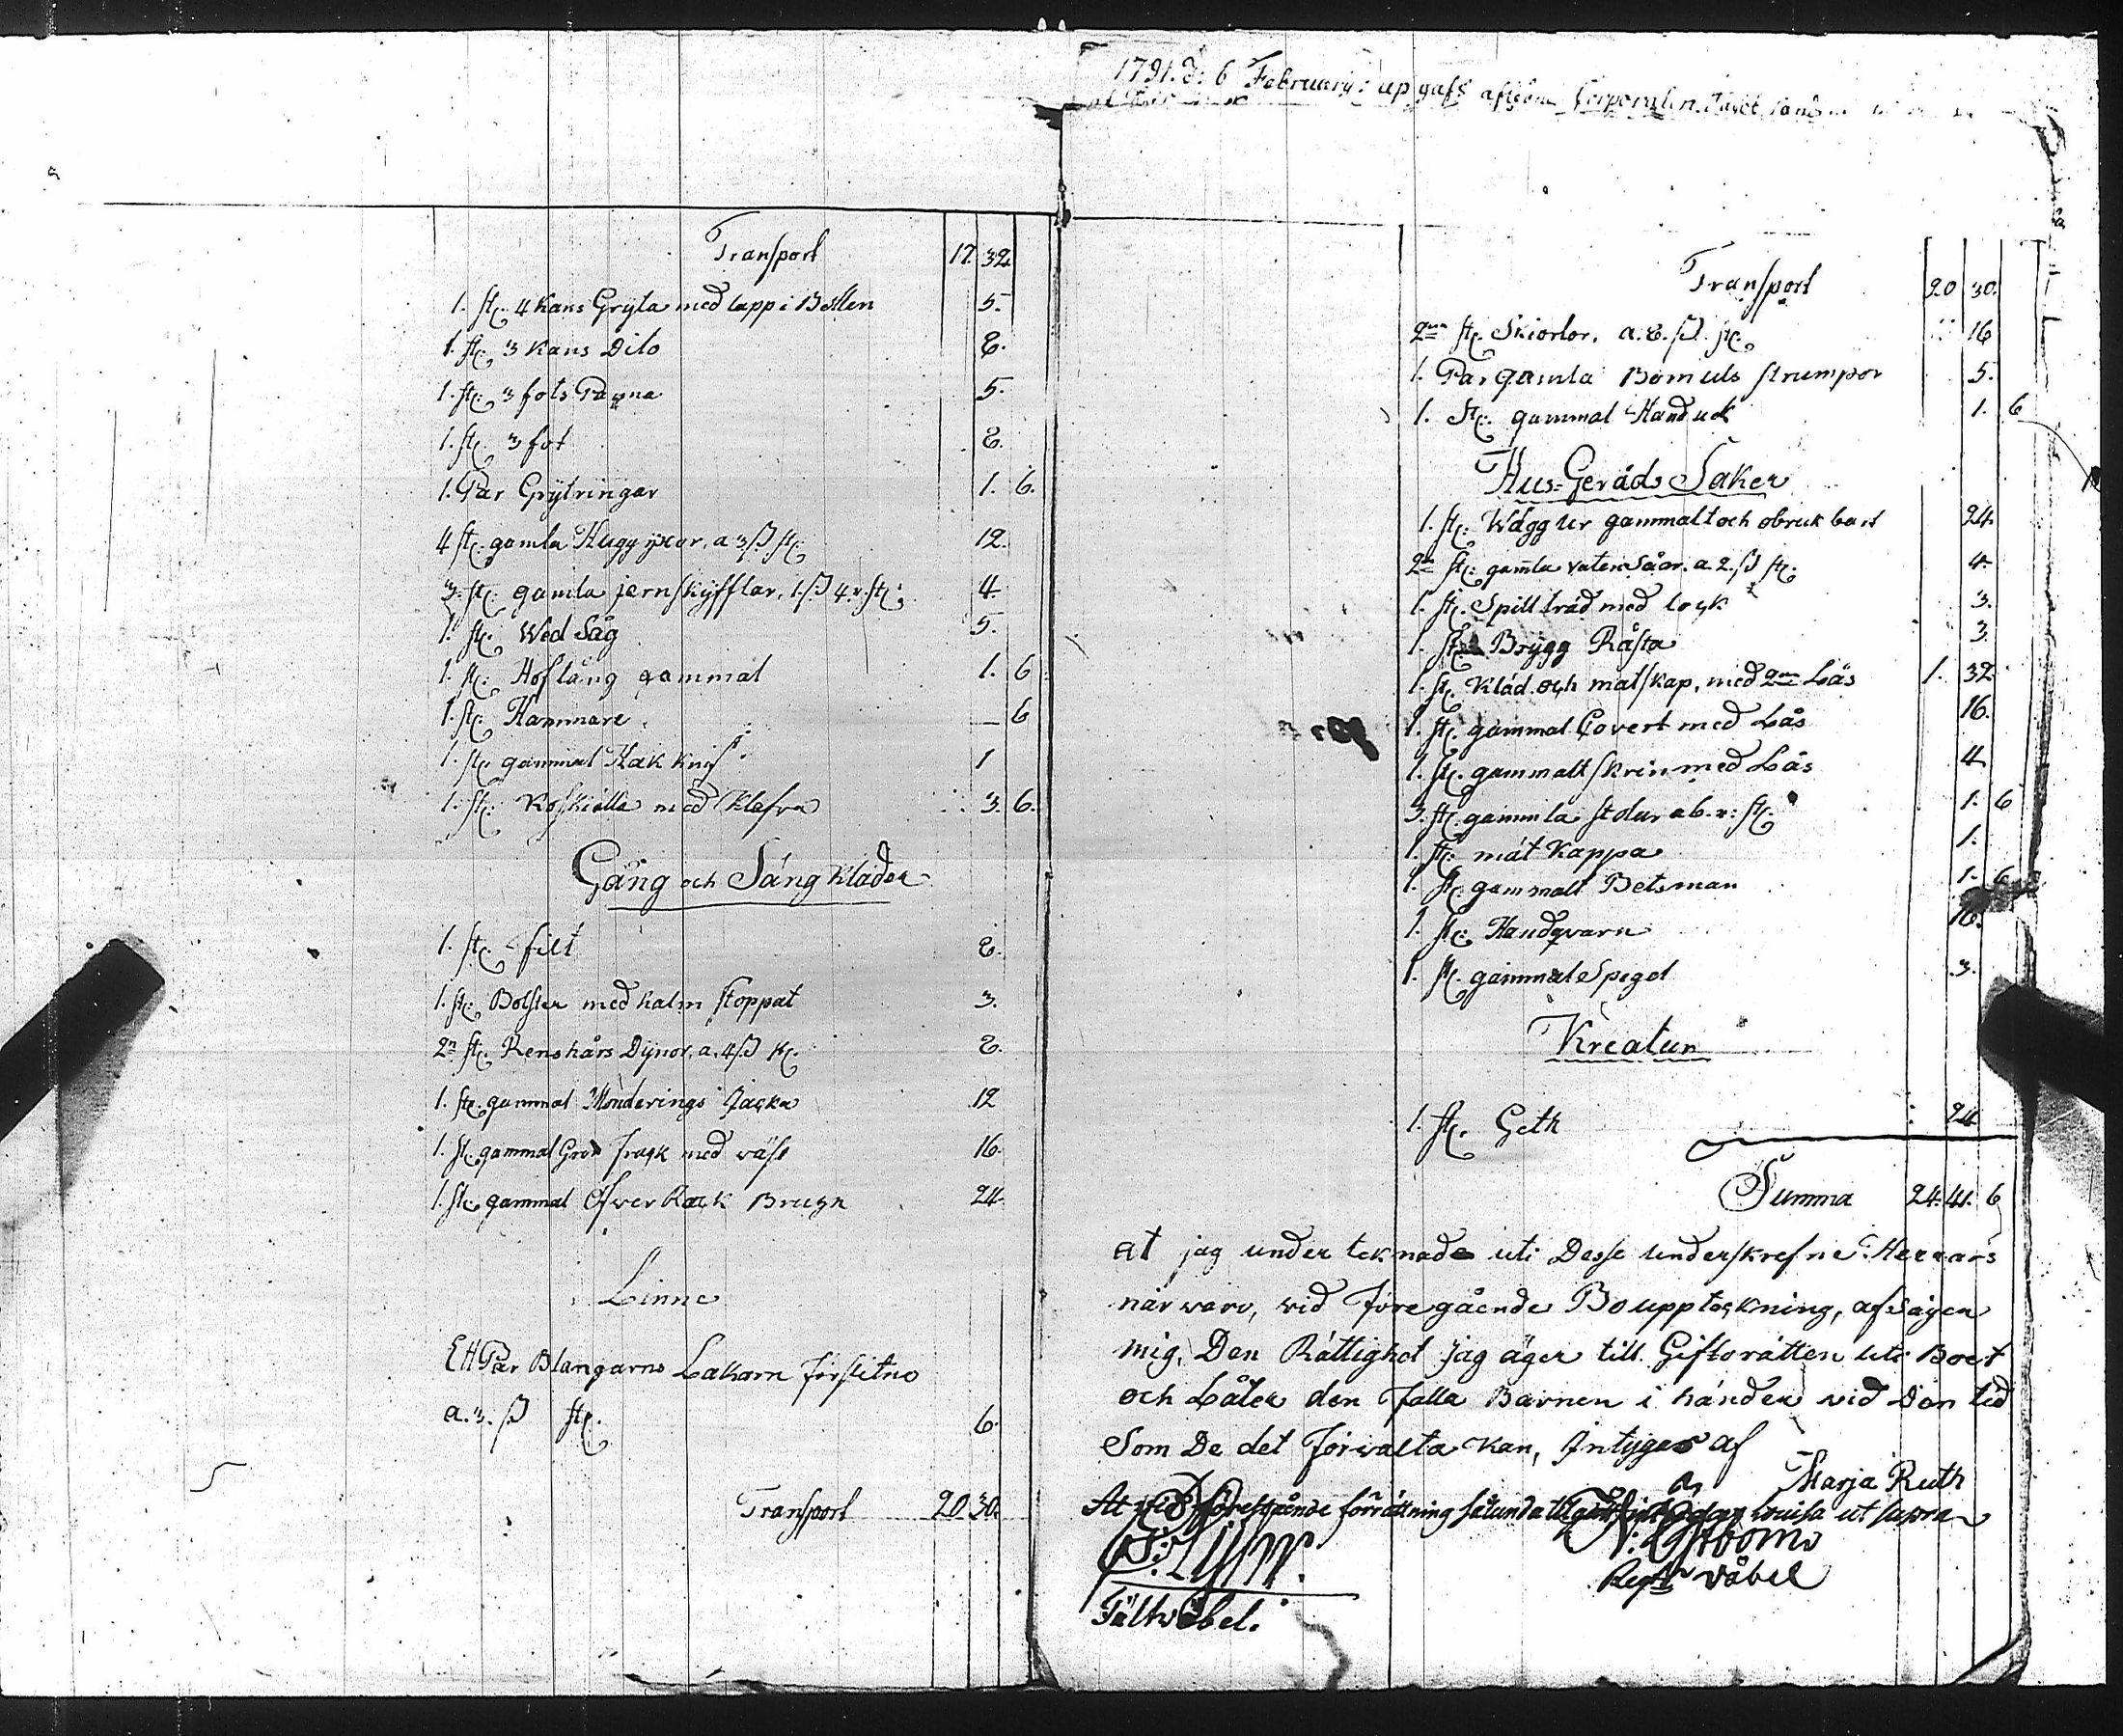 Transport 17. 32.
1. st: 4 Kans Gryta med lapp i Botten 5.
1. st: 3 Kans Dito 8.
1. st: 3 fots Panna 5.
1. st: 3 fot 8.
1. Par Grytringar 1. 6.
4 st: gamla Huggyxor, a 3 ß st: 12.
3. st: gamla jernskyfflar, 1. ß 4 r. st: 4
1. st: Wed Såg 5.
1. st: Hoftång gammal 1. 6
1. st: Hammare — 6
1. st: gammal Hak knif 1
1. st: Koskiälla med Klafva 3. 6.
Gång och Säng kläder
1. st: filt 8.
1. st: Bolster med halm stoppat 3.
2n st: Renshårs Dynor, a. 4 ß st. 8.
1. st: gammal Monderings Jacka 12
1. st: gammal Grå frack med väst 16.
1. st: gammal Öfver Rack 24.
Linne
Ett Par Blangarns Lakarn förslitno
a. 3. ß st. 6.
Transport 20 30.
1791. d: 6 February: up gafs aflidne Corporalen
Transport 20 30.
2ne st: Skiortor, a. 8. ß. st: 16
1. Par gamla Bomuls strumpor 5.
1. st: gammal Handuk 1. 6
Hus-Geråds Saker
1. st: Wägg Ur gammalt och obruk bart 24.
2n st: gamla vaten Såar. a 2. ß st: 4
1. st: Spillträd med lock 3.
1. st: Brygg Råsta 3.
1. st: Kläd och matskap, med 2ne Lås 1. 32.
1. st: gammal Covert med Lås 16.
1. st: gammalt skrin med Lås 4
3. st: gammla stolar a 6. r: st: 1. 6
1. st: mat Kappa 1.
1. st: gammalt Betsman 1. 6
1. st: Handqvarn 16.
1. st: gammal Spegel 3.
Kreatur
1. st: Geth 24
Summa 24. 41. 6
at jag under teknade uti Desse underskrefne Herrars
närvaro, vid föregående Bouppteckning, afsäger
mig, Den Rättighet jag äger till Giftorätten uti Boet
och Låter den falla Barnen i händer vid Den tid
Som De det förvalta kan, Intygas af
Marja Ruth
At vid förestående förrättning sålunda tilgått Lovisa ut supra
Regts väbel
Fältväbel.